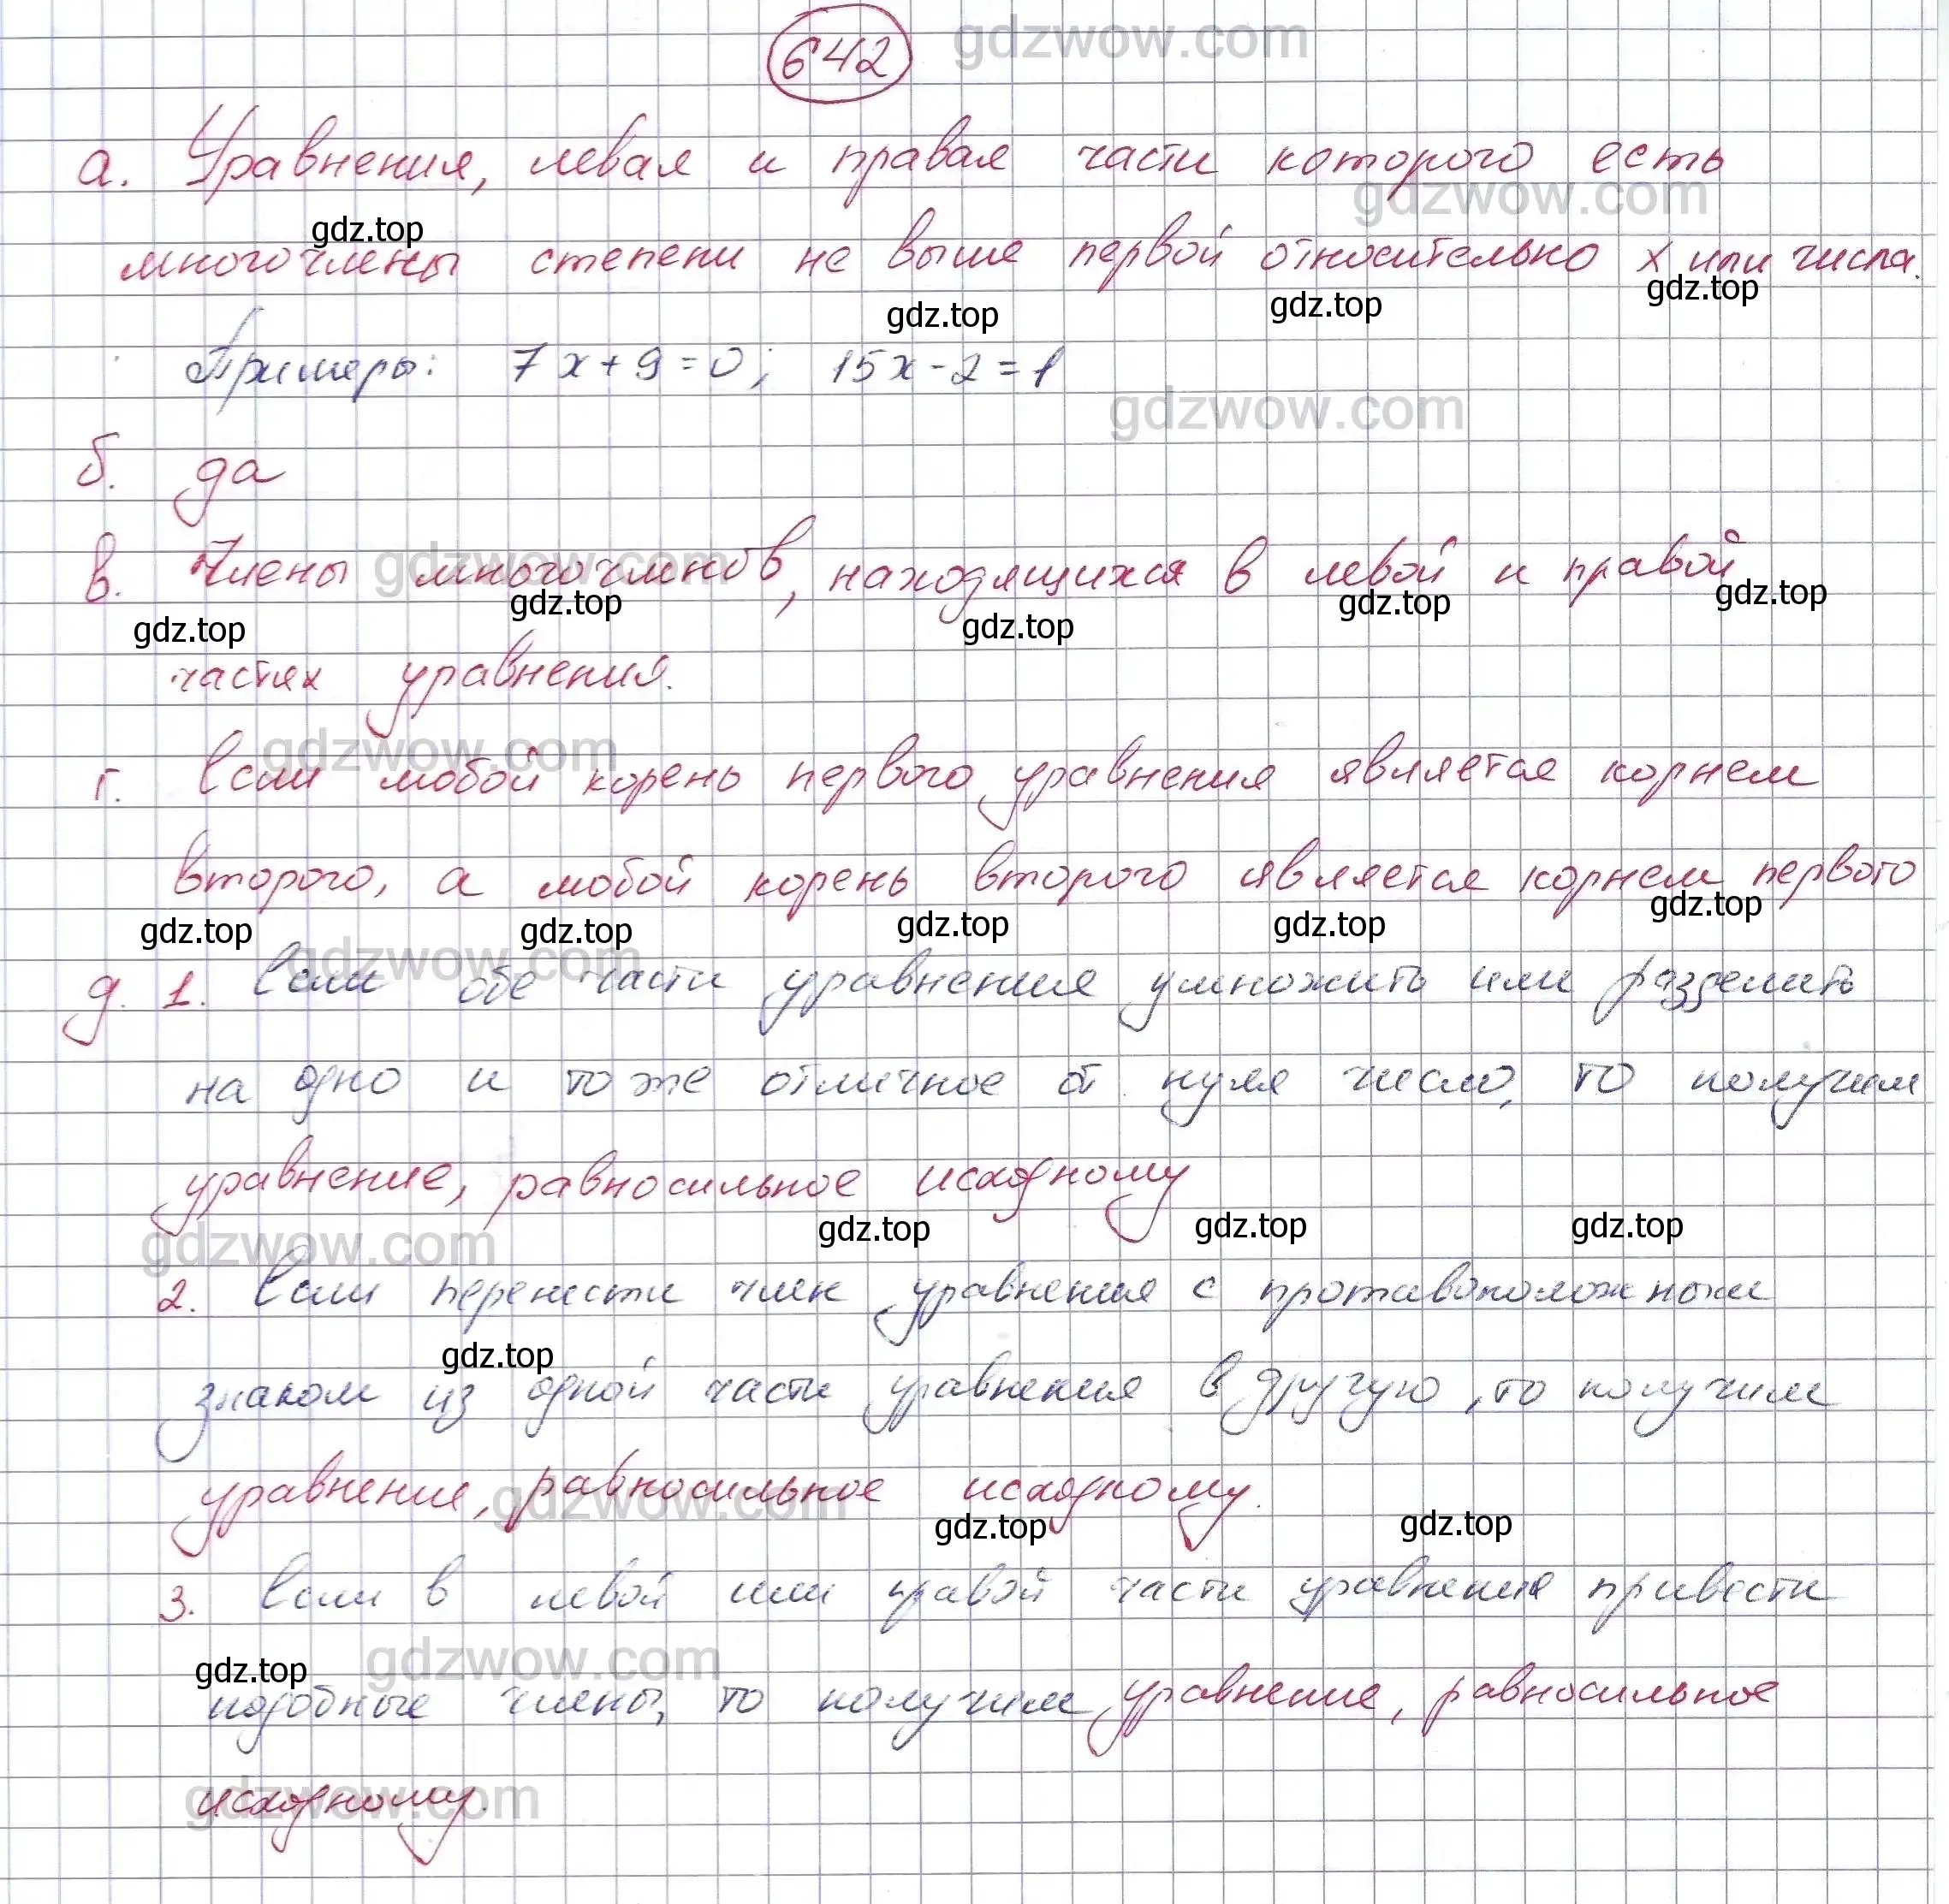 642
gdzwow.com
а. Уравнения, левая и правая части которого есть
gdzwow.com
gdz.top
многочлены степени не выше первой относительно x или числа.
gdz.top gdz.top gdz.top
Примеры: 7x+9=0; 15x-2=1
gdzwow.com
б. да
в. Члены многочмнов, находящихся в левой и правой
gdzwow.com
gdz.top gdz.top gdz.top gdz.top gdz.top
частях уравнения.
gdzwow.com
г. Если любой корень первого уравнения является корнем
второго, а любой корень второго является корнем первого
gdz.top gdz.top gdz.top gdz.top gdz.top
gdzwow.com
д. 1. Если обе части уравнения умножить или разделить
на одно и то же отличное от нуля число, то получим
уравнение, равносильное исходному
gdz.top gdz.top gdz.top
gdzwow.com
2. Если перенести член уравнения с противоположным
gdz.top
знаком из одной части уравнения в другую, то получим
уравнение, равносильное исходному.
gdzwow.com
gdz.top gdz.top
3. Если в левой или правой части уравнения привести
gdz.top gdzwow.com
подобные члены, то получим уравнение, равносильное
исходному.
gdzwow.com